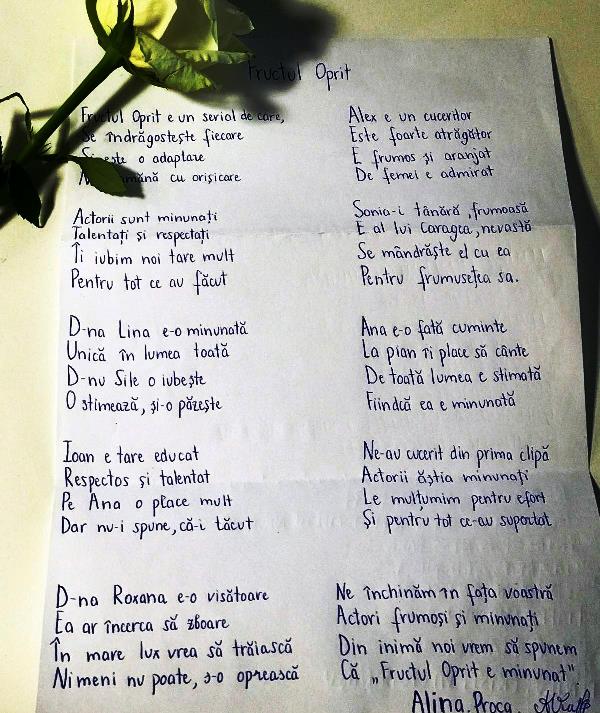 Fructul Oprit
Fructul Oprit e un serial de care,
Se îndrăgostește fiecare
Și este o adaptare
cu orișicare
Actorii sunt minunați
Talentați și respectați
Îi iubim noi tare mult
Pentru tot ce au făcut
D-na Lina e-o minunată
Unică în lumea toată
D-nu Sile o iubește
O stimează, și-o păzește
Ioan e tare educat
Respectos și talentat
Pe Ana o place mult
Dar nu-i spune, că-i tăcut
D-na Roxana e-o visătoare
Ea ar încerca să zboare
În mare lux vrea să trăiască
Nimeni nu poate, s-o oprească
Alex e un cuceritor
Este foarte atrăgător
E frumos și aranjat
De femei e admirat
Sonia-i tânără, frumoasă
E al lui Caragea, nevastă
Se mândrăște el cu ea
Pentru frumusețea sa.
Ana e-o fată cuminte
La pian îi place să cânte
De toată lumea e stimată
Fiindcă ea e minunată
Ne-au cucerit din prima clipă
Actorii ăștia minunați
Le mulțumim pentru efort
Și pentru tot ce-au suportat
Ne închinăm în fața voastră
Actori frumoși și minunați
Din inimă noi vrem să spunem
Că „Fructul Oprit e minunat”.
Alina Proca.